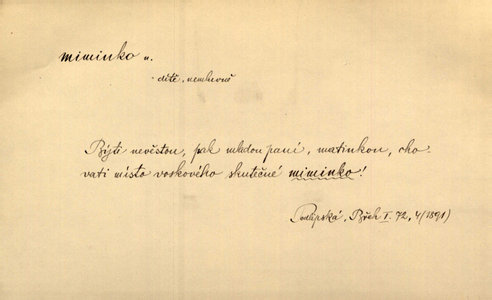 miminko n.
dítě, nemluvně
Býti nevěstou, pak mladou paní, matinkou, cho-
vati místo voskového skutečné miminko!
Podlipská, Břeh I. 72, 4 (1891)